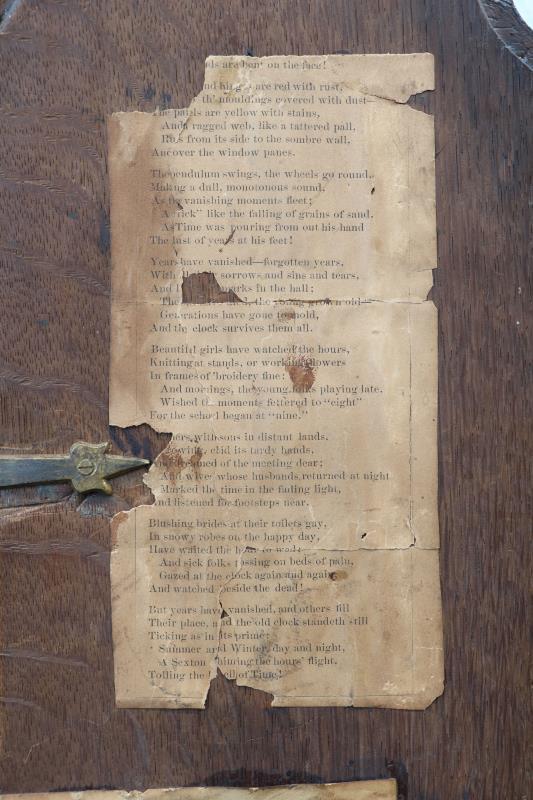 ds are bent on the face!
nd hinges are red with rust,
the mouldings covered with dust—
The panels are yellow with stains,
And ragged web, like a tattered pall,
Runs from its side to the sombre wall,
And over the window panes.
The pendulum swings, the wheels go round,
Making a dull, monotonous sound,
As the vanishing moments fleet;
A "tick" like the falling of grains of sand,
As Time was pouring from out his hand
The dust of years at his feet!
Years have vanished—forgotten years,
With all their sorrows and sins and tears,
And marks in the hall;
The the young grown old—
Generations have gone to mold,
And the clock survives them all.
Beautiful girls have watched the hours,
Knitting at stands, or working flowers
In frames of broidery fine;
And mornings, the young folks playing late,
Wished the moments fettered to "eight"
For the school began at "nine."
hers, with sons in distant lands,
chid its tardy hands,
And dreamed of the meeting dear;
And wives whose husbands returned at night
Marked the time in the fading light,
And listened for footsteps near.
Blushing brides at their toilets gay,
In snowy robes on the happy day,
Have waited the hour to wed;
And sick folks tossing on beds of pain,
Gazed at the clock again and again,
And watched beside the dead!
But years have vanished, and others fill
Their place, and the old clock standeth still
Ticking as in its prime;
Summer and Winter, day and night,
A Sexton chiming the hours' flight,
Tolling the knell of Time!